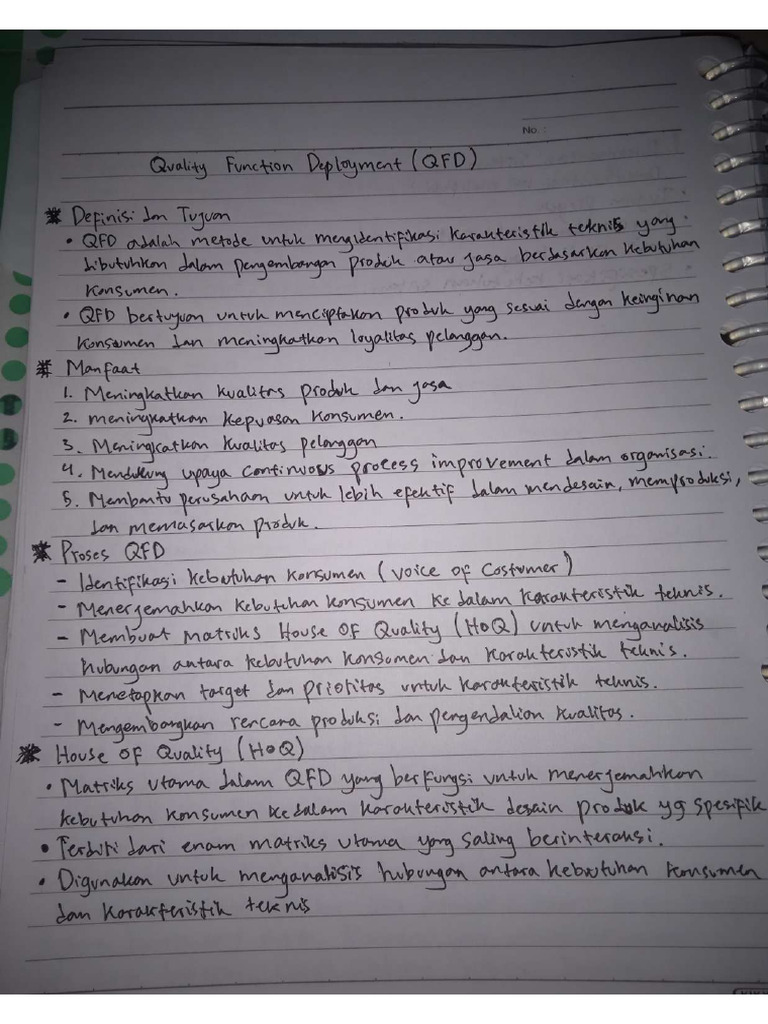 No. :
Quality Function Deployment (QFD)
* Definisi dan Tujuan
• QFD adalah metode untuk mengidentifikasi karakteristik teknis yang
dibutuhkan dalam pengembangan produk atau jasa berdasarkan kebutuhan
konsumen.
• QFD bertujuan untuk menciptakan produk yang sesuai dengan keinginan
konsumen dan meningkatkan loyalitas pelanggan.
* Manfaat
1. Meningkatkan kualitas produk dan jasa
2. meningkatkan kepuasan konsumen.
3. Meningkatkan kualitas pelanggan
4. Mendukung upaya continuous process improvement dalam organisasi.
5. Membantu perusahaan untuk lebih efektif dalam mendesain, memproduksi,
dan memasarkan produk.
* Proses QFD
- Identifikasi kebutuhan konsumen (voice of Costumer)
- Menerjemahkan kebutuhan konsumen ke dalam karakteristik teknis.
- Membuat matriks House OF Quality (HoQ) untuk menganalisis
hubungan antara kebutuhan konsumen dan karakteristik teknis.
- Menetapkan target dan prioritas untuk karakteristik teknis.
- Mengembangkan rencana produksi dan pengendalian kualitas.
* House OF Quality (HoQ)
• Matriks utama dalam QFD yang berfungsi untuk menerjemahkan
kebutuhan konsumen ke dalam karakteristik desain produk yg spesifik
• Terdiri dari enam matriks utama yang saling berinteraksi.
• Digunakan untuk menganalisis hubungan antara kebutuhan konsumen
dan karakteristik teknis